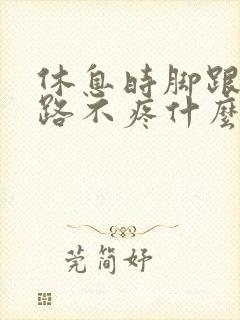 休息时脚跟
路不疼什麼
莞简妤